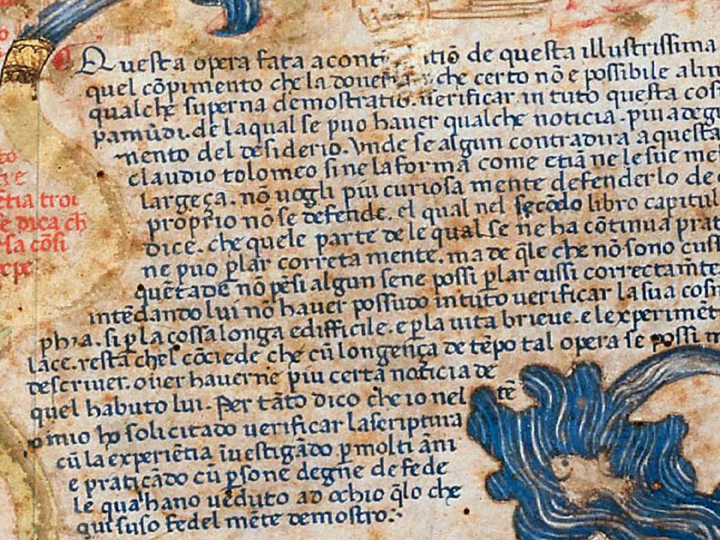 Questa opera fata a cont itiõ de questa illustrissima
quel cõpimento che la doueria che certo nõ e possibile
qualche superna demostratiõ. uerificar in tuto questa cos
pamũdi. de la qual se puo hauer qualche noticia. piu adegu
mento del desiderio. Vnde se algun contradira a questa
claudio tolomeo si ne la forma come etiã ne le sue me
largeça. nõ uogli piu curiosa mente defenderlo de
proprio nõ se defende. el qual nel secõdo libro capitul
dice. che quele parte de le qual se ne ha cõtinua prat
ne puo plar correta mente. ma de q̃le che nõ sono
quẽtade nõ pẽsi algun se ne possi plar cussi correctamẽte
intẽdando lui nõ hauer possudo in tuto uerificar la sua cosm
phia. si p la cossa longa e difficile. e p la uita brieue. e le experimẽt
lace. resta chel cõciede che cũ longeça de tẽpo tal opera se possi m
descriuer. ouer hauerne piu certa noticia de
quel habuto lui. Per tãto dico che io nel tẽ
o mio ho solicitado uerificar la scriptura
cũ la experiẽtia ĩuestigãdo p molti ãni
e praticãdo cũ psone degne de fede
le qual hano ueduto ad ochio q̃lo che
qui suso fedel mẽte demostro:·
to
etia troi
e dica ch
sa cõsi